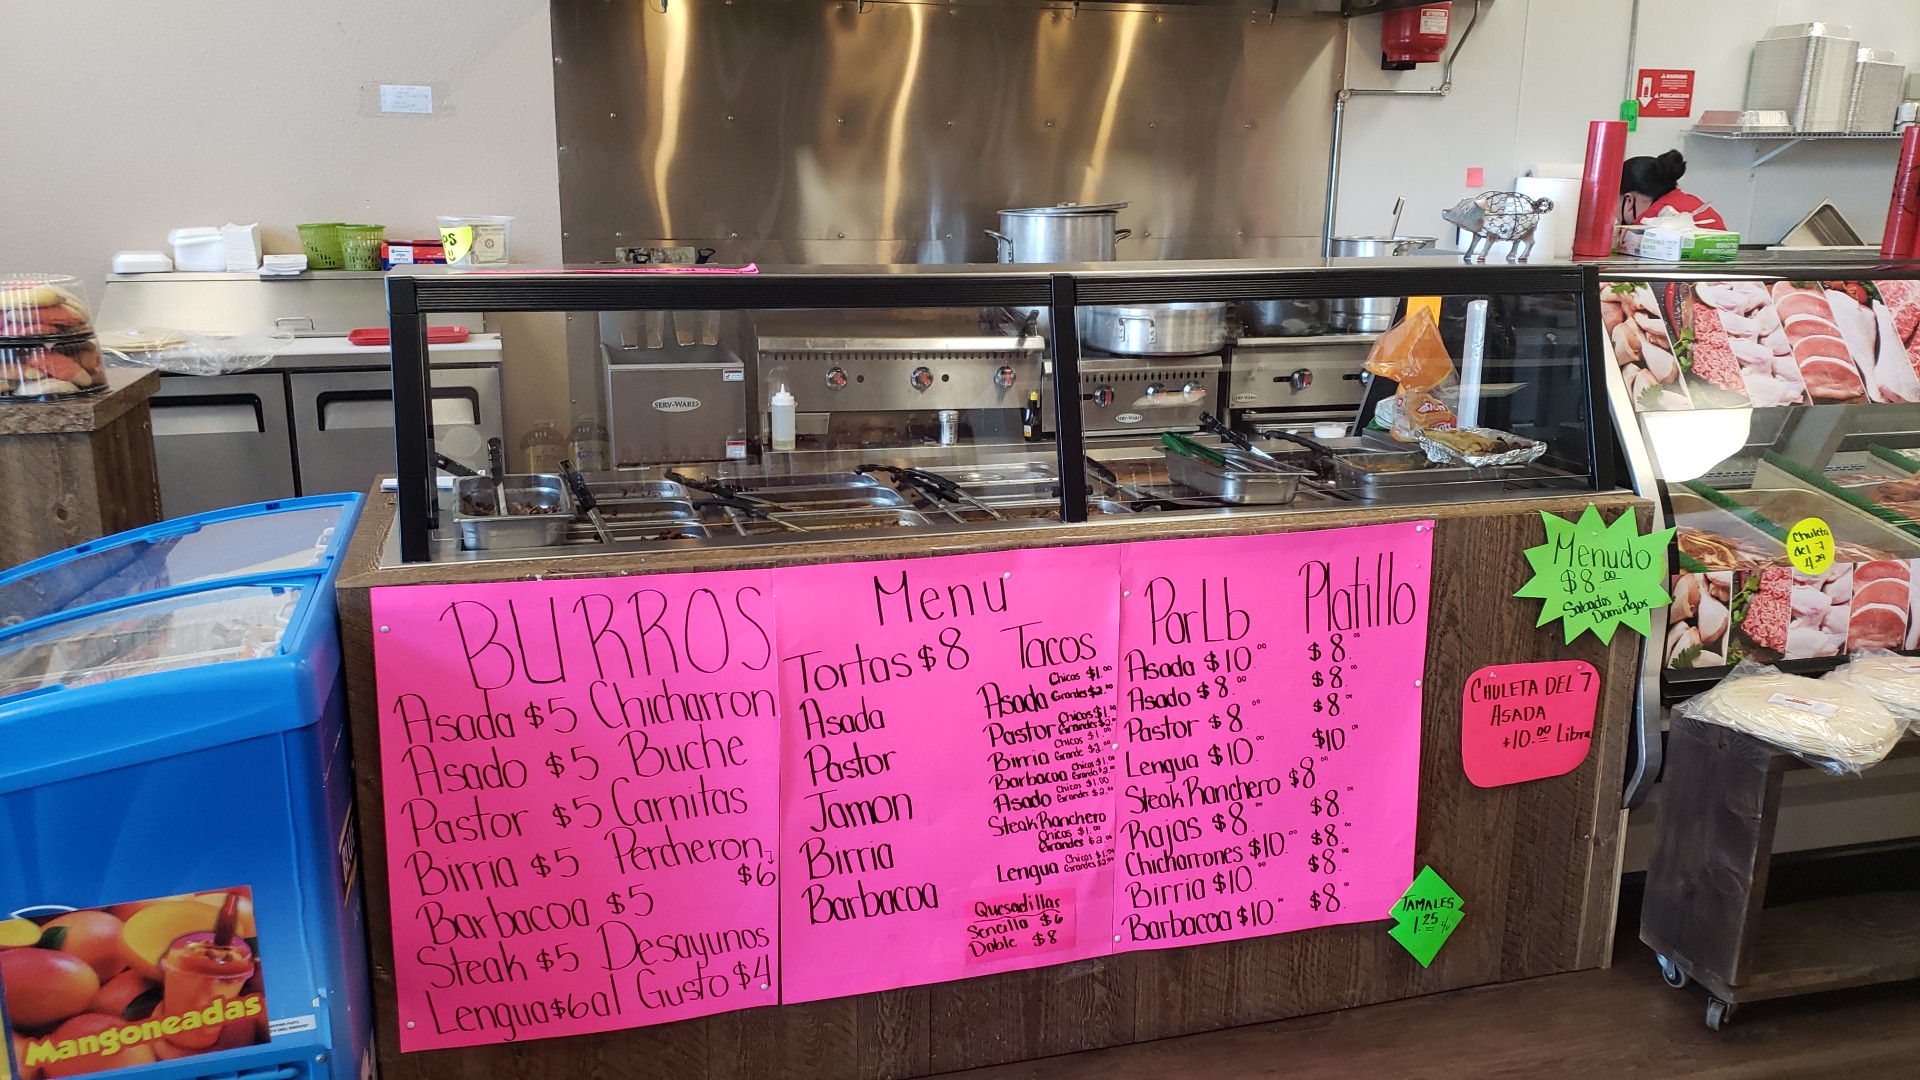 BURROS
Asada $5 Chicharron
Asado $5 Buche
Pastor $5 Carnitas
Birria $5 Percheron
$6
Barbacoa $5
Steak $5 Desayunos
Lengua $6 al Gusto $4
Menu
Tortas $8
Asada
Pastor
Jamon
Birria
Barbacoa
Tacos
Chicos $1.00
Asada Grandes $2.00
Chicos $1.00
Pastor Grandes $2.00
Chicos $1.00
Birria Grande $2.00
Chicos $1.00
Barbacoa Grande $2.00
Chicos $1.00
Asado Grandes $2.00
Steak Ranchero
Chicos $1.00
Grandes $2.00
Chicos $1.00
Lengua Grandes $2.00
Quesadillas
Sencilla $6
Doble $8
Por Lb Platillo
Asada $10.00 $8.00
Asado $8.00 $8.00
Pastor $8.00 $8.00
Lengua $10.00 $10.00
Steak Ranchero $8.00
Rajas $8.00 $8.00
Chicharrones $10.00 $8.00
Birria $10.00 $8.00
Barbacoa $10.00 $8.00
Menudo
$8.00
Sabados y
Domingos
CHULETA DEL 7
ASADA
$10.00 Libra
TAMALES
1.25 c/u
Chuleta
del 7
4.29
Mangoneadas
SERV-WARE
WARNING
PRECAUCION